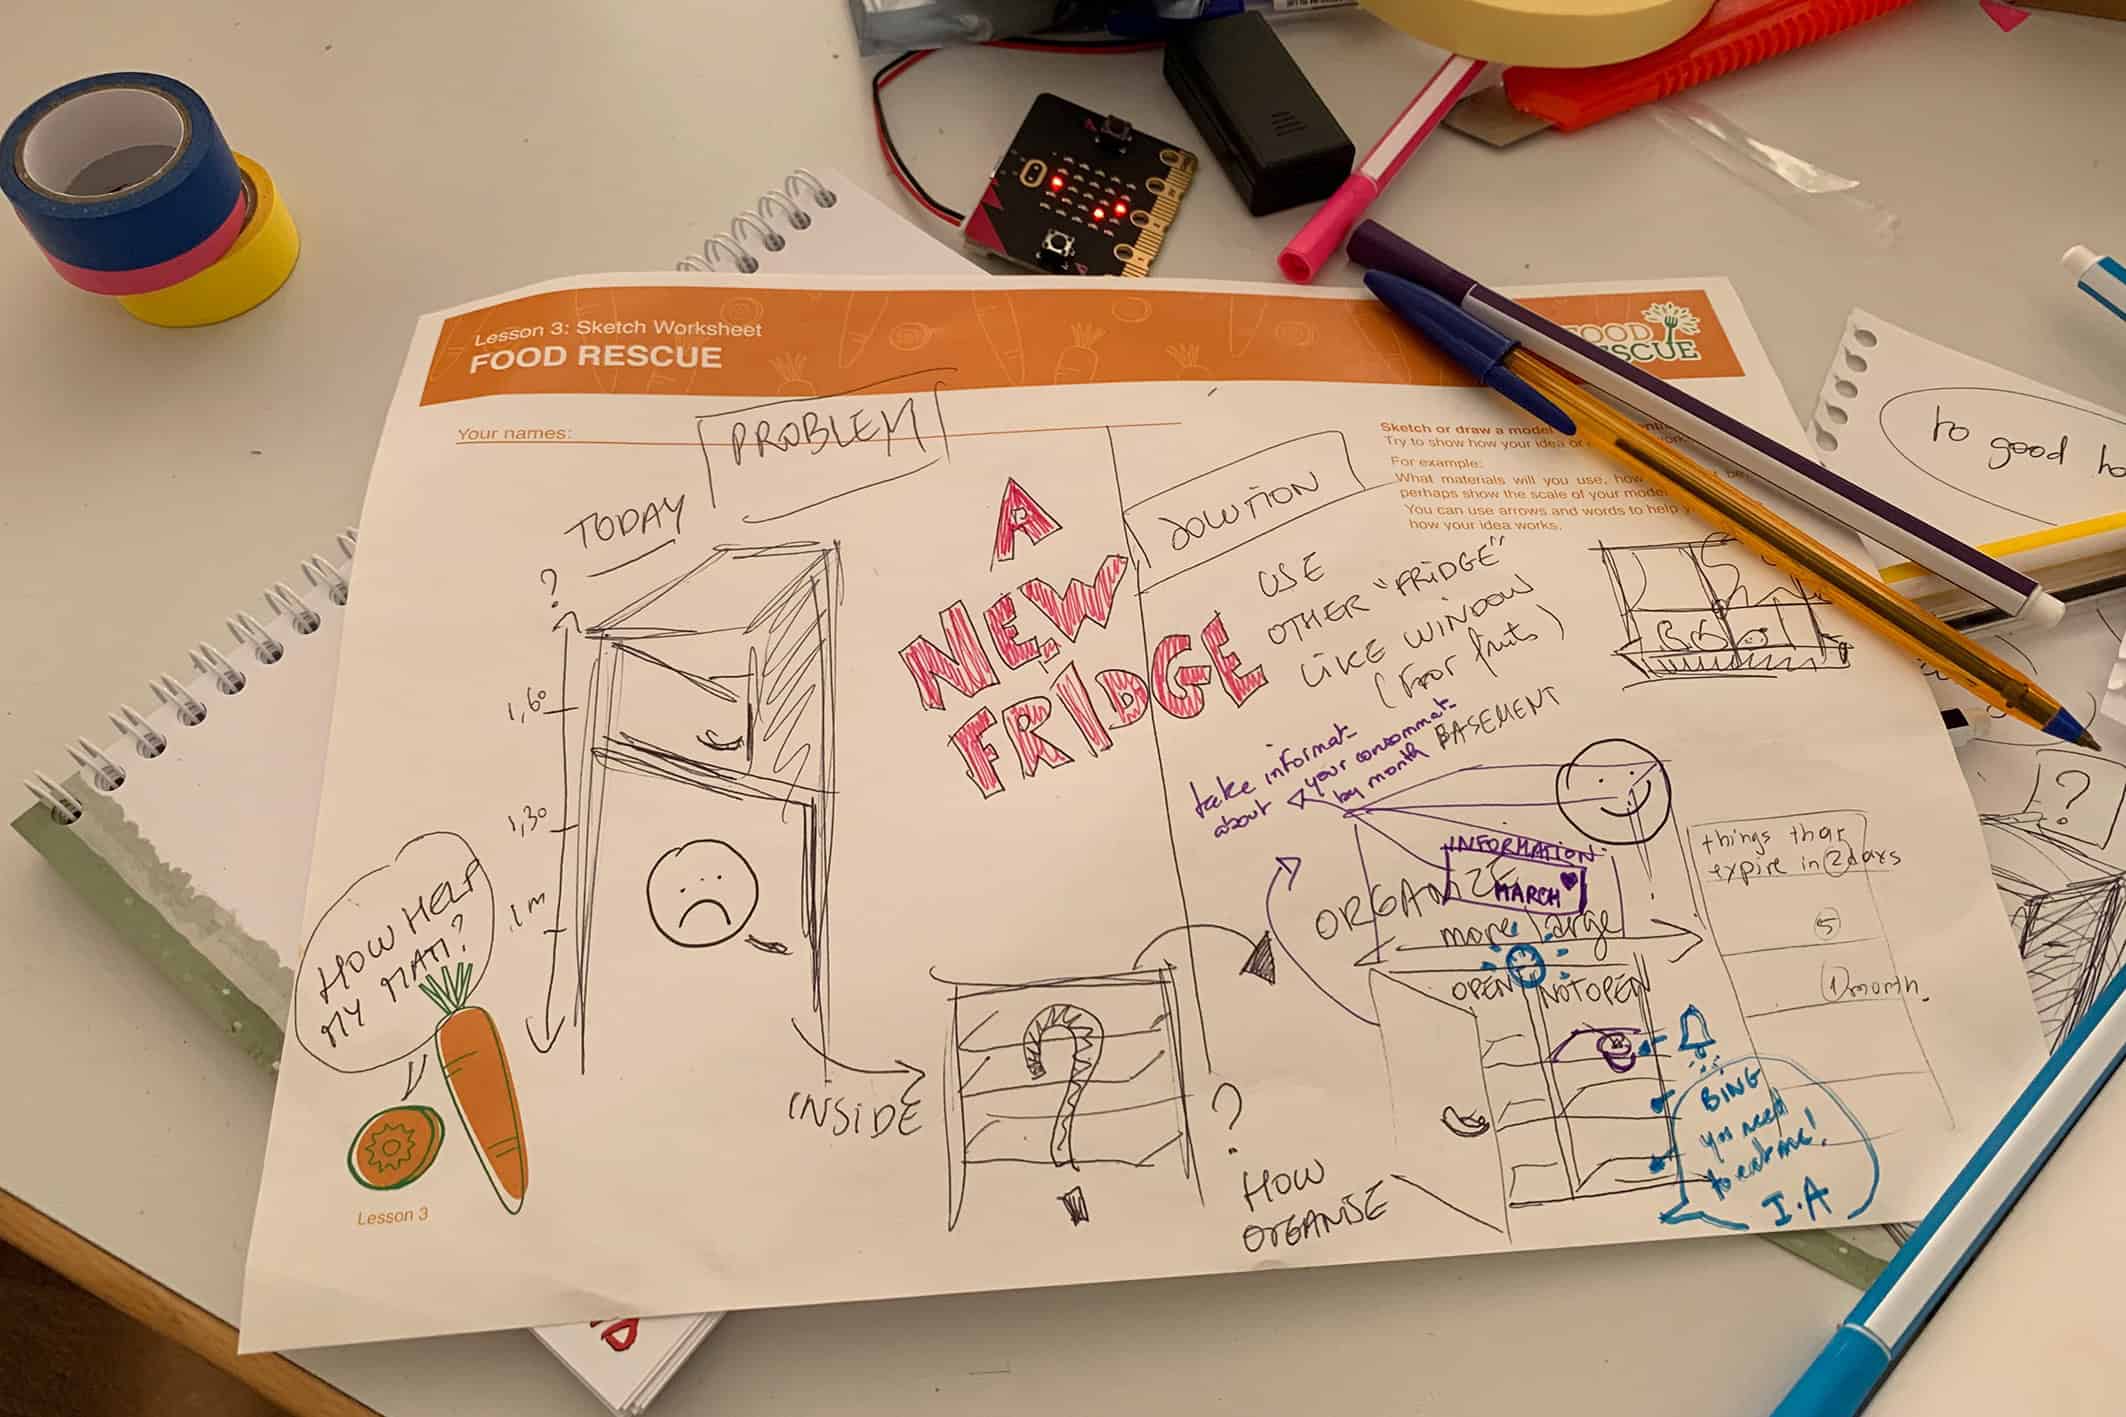 Lesson 3: Sketch Worksheet
FOOD RESCUE
FOOD
ESCUE
Your names:
PROBLEM
Sketch or draw a model
Try to show how your idea or
For example:
What materials will you use, how
perhaps show the scale of your mode
You can use arrows and words to help y
how your idea works.
TODAY
?
1,60
1,30
1 m
A
NEW
FRIDGE
SOLUTION
USE
OTHER "FRIDGE"
LIKE WINDOW
(FOR fruits)
BASEMENT
take informat-
about your consommat-
by month
INFORMATION
MARCH
ORGANIZE
more large
OPEN
NOT OPEN
things that
expire in 2 days
5
1 month.
BING
you need
to eat me!
I.A
HOW HELP
MY MATI?
INSIDE
?
?
HOW
ORGANISE
Lesson 3
to good to
?